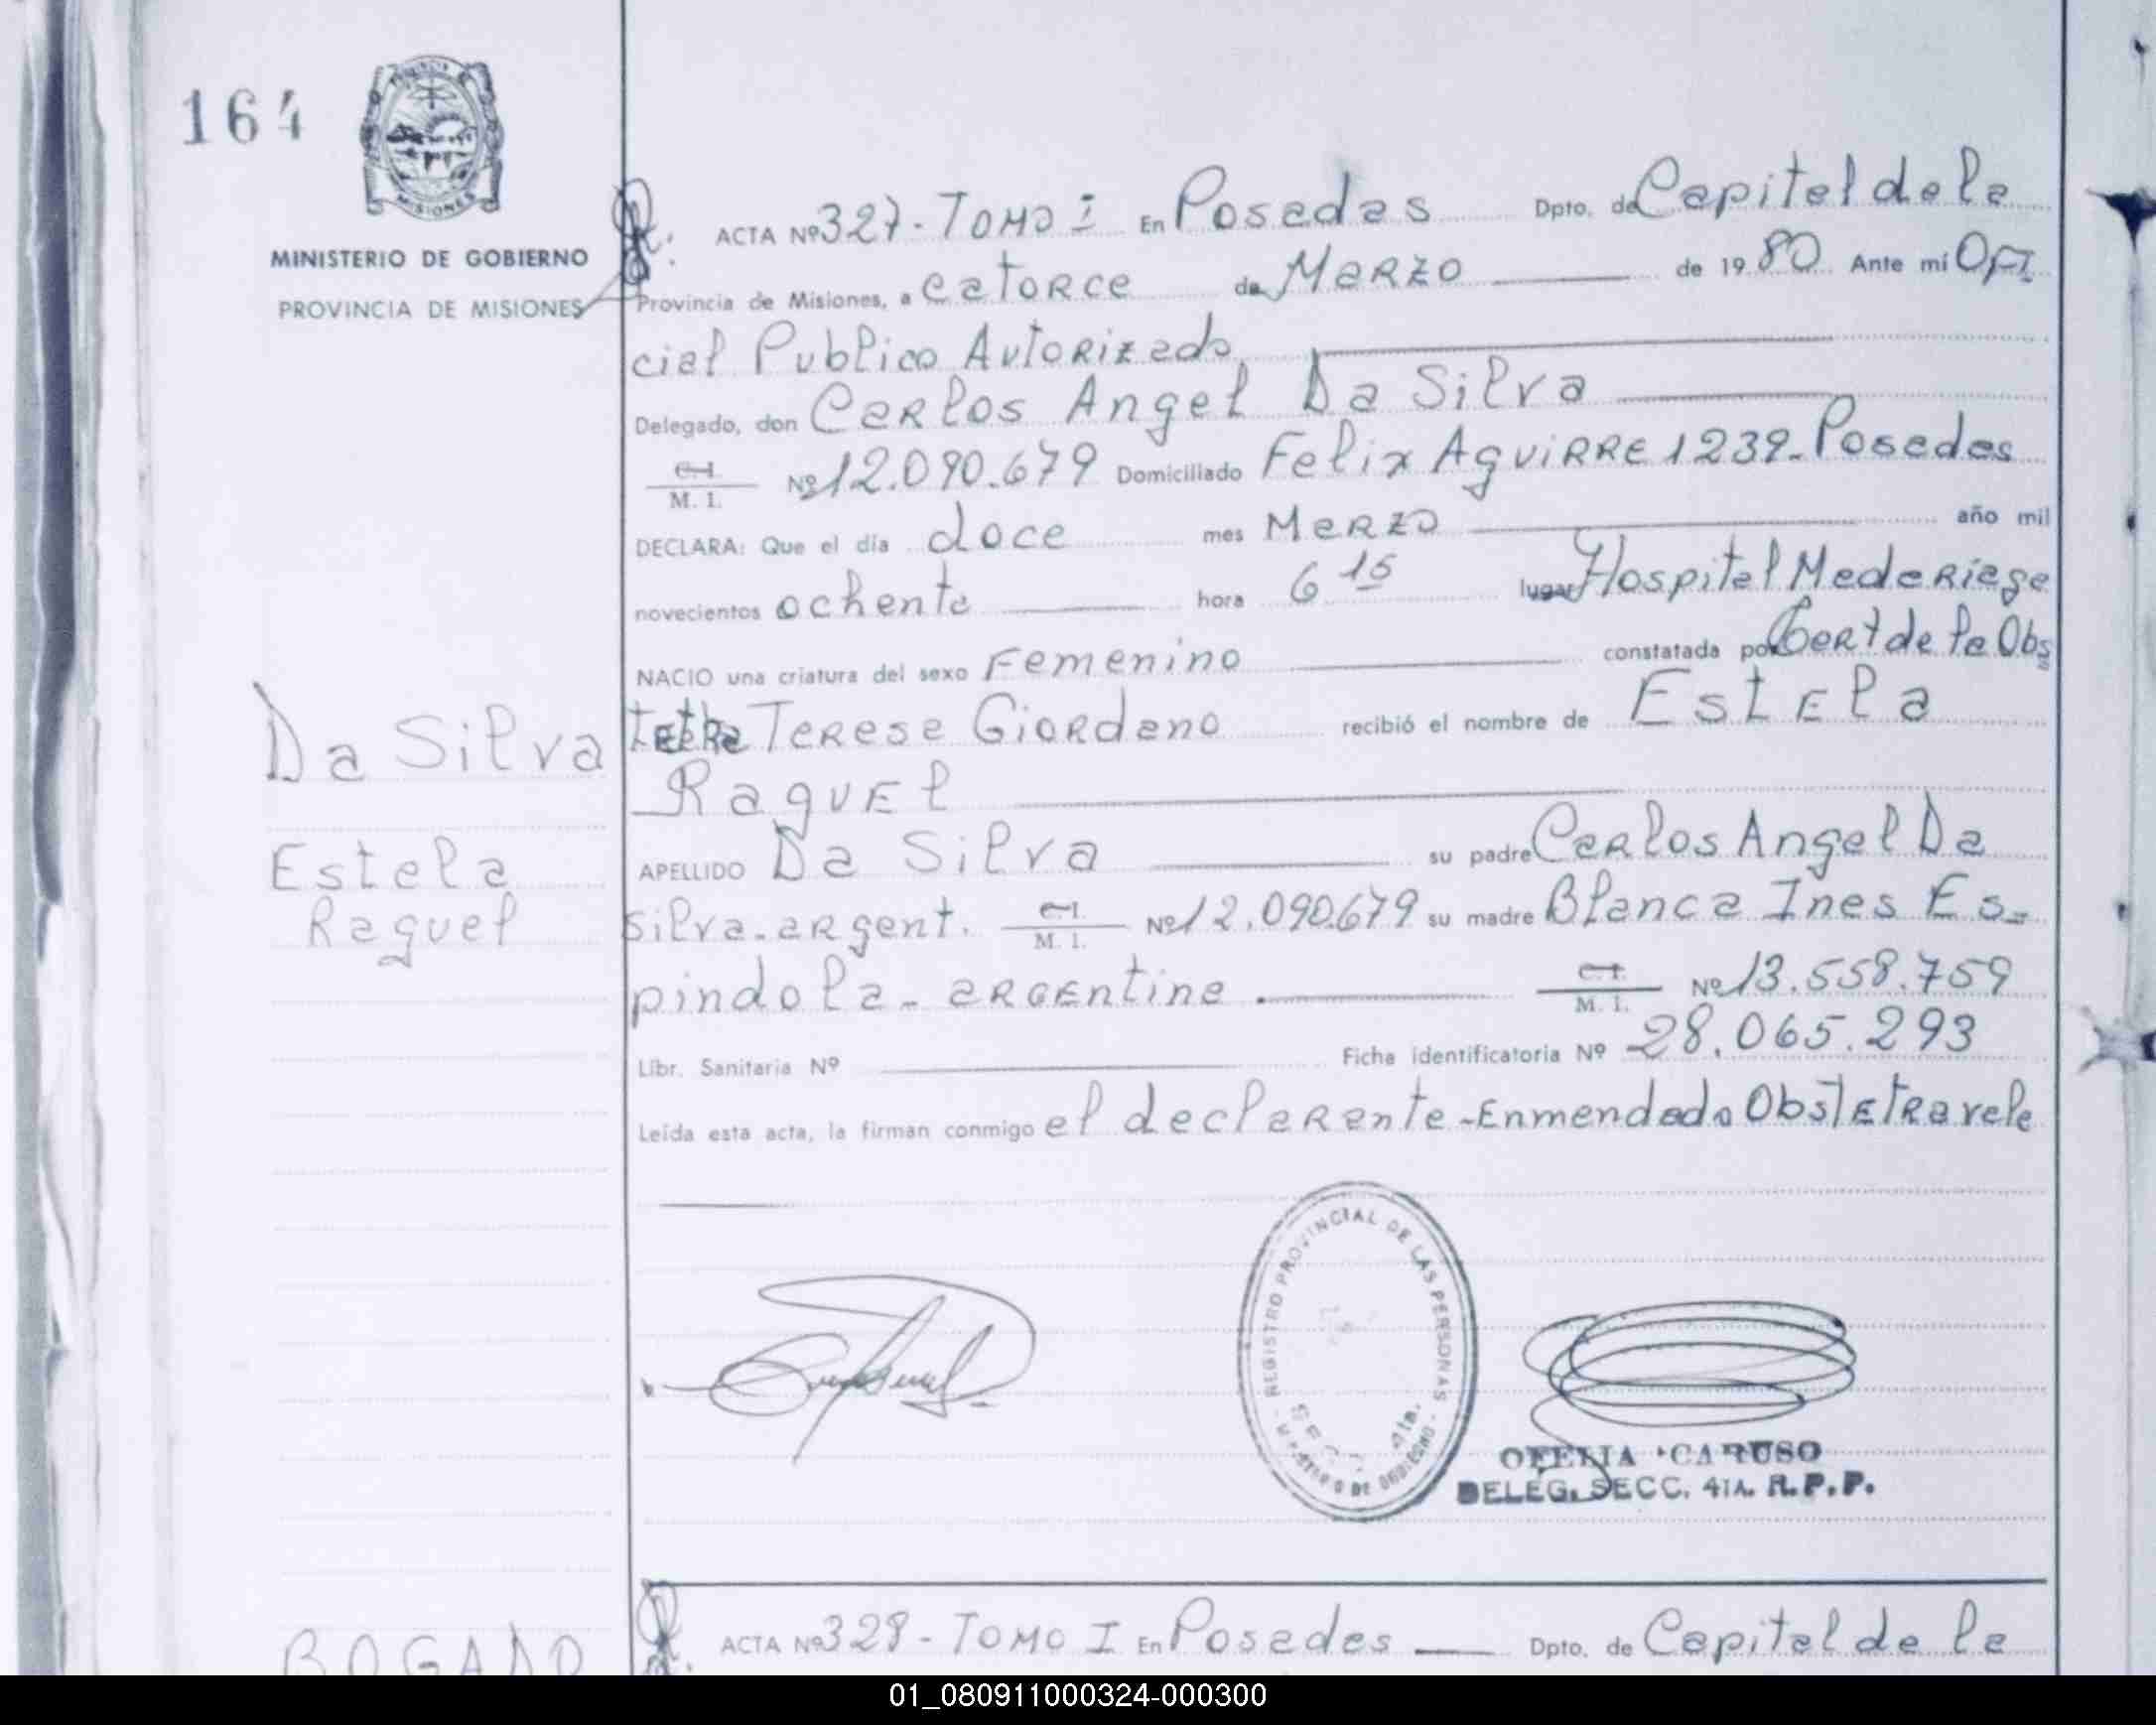 164
PROVINCIA DE MISIONES
MINISTERIO DE GOBIERNO
PROVINCIA DE MISIONES
ACTA Nº 327 - TOMO I En Posadas Dpto. de Capital de la
Provincia de Misiones, a catorce de Marzo de 1980 Ante mi Ofi
cial Publico Autorizado
Delegado, don Carlos Angel Da Silva
C.I. M. I. Nº 12.090.679 Domiciliado Felix Aguirre 1239 - Posadas
DECLARA: Que el día doce mes Marzo año mil
novecientos ochenta hora 6 15 lugar Hospital Madariaga
NACIO una criatura del sexo Femenino constatada por Cert de la Obs
tetra Teresa Giordano recibió el nombre de Estela
Raquel
APELLIDO Da Silva su padre Carlos Angel Da
Silva - argent. C.I. M. I. Nº 12.090.679 su madre Blanca Ines Es-
pindola - argentina C.I. M. I. Nº 13.558.759
Libr. Sanitaria Nº Ficha identificatoria Nº 28.065.293
Leída esta acta, la firman conmigo el declarante - Enmendado Obstetra vale
Da Silva
Estela
Raquel
REGISTRO PROVINCIAL DE LAS PERSONAS
SECC. 4ta.
MINISTERIO DE GOBIERNO
OFELIA CARUSO
DELEG. SECC. 4TA. R.P.P.
BOGADO
ACTA Nº 328 - TOMO I En Posadas Dpto. de Capital de la
01_080911000324-000300